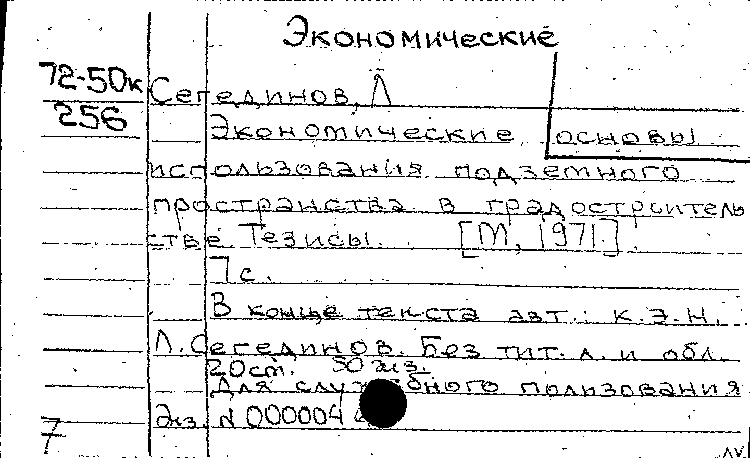 Экономические
72-50к Сегединов, Л
256 Экономические основы
использования подземного
пространства в градостроитель
стве Тезисы. [М, 1971].
7с.
В конце текста авт.: к.э.н.
Л. Сегединов. Без тит. л. и обл.
20см. 50 экз.
Для служебного ползования
Экз. N 000004
7